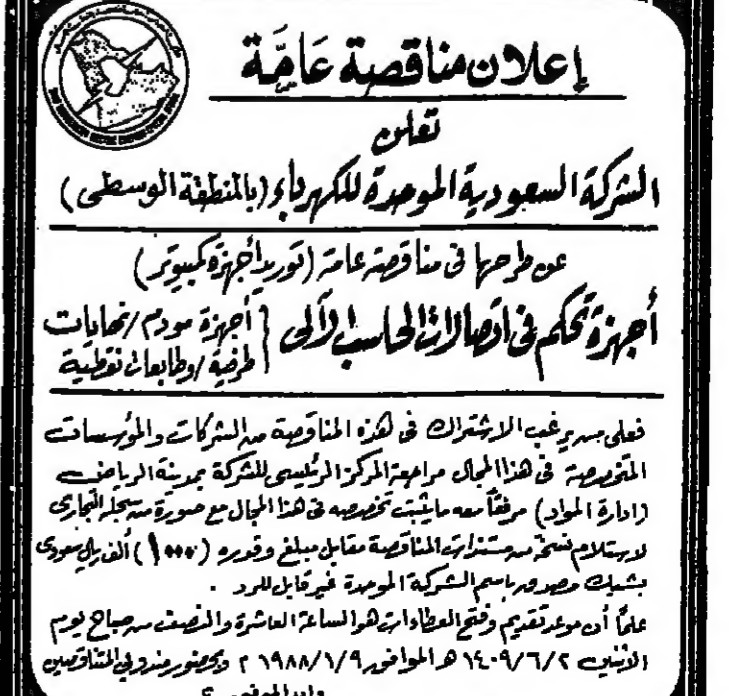 إعلان مناقصة عامة
تعلن
الشركة السعودية الموحدة للكهرباء (بالمنطقة الوسطى)
عن طرحها فى مناقصة عامة (توريد أجهزة كمبيوتر)
أجهزة تحكم فى اتصالات الحاسب الآلى [أجهزة مودم / نهايات
طرفية / وطابعات نقطية
فعلى من يرغب الاشتراك فى هذه المناقصة من الشركات والمؤسسات
المتخصصة فى هذا المجال مراجعة المركز الرئيسى للشركة بمدينة الرياض
(ادارة المواد) مرفقاً معه مايثبت تخصصه فى هذا المجال مع صورة من سجله التجارى
لاستلام نسخة من مستندات المناقصة مقابل مبلغ وقدره (١٠٠٠) ألف ريال سعودى
بشيك مصدق باسم الشركة الموحدة غير قابل للرد .
علماً أن موعد تقديم وفتح العطاءات هو الساعة العاشرة والنصف من صباح يوم
الاثنين ١٤٠٩/٦/٢ هـ الموافق ١٩٨٨/١/٩ م وبحضور مندوبى المتناقصين
والله الموفق